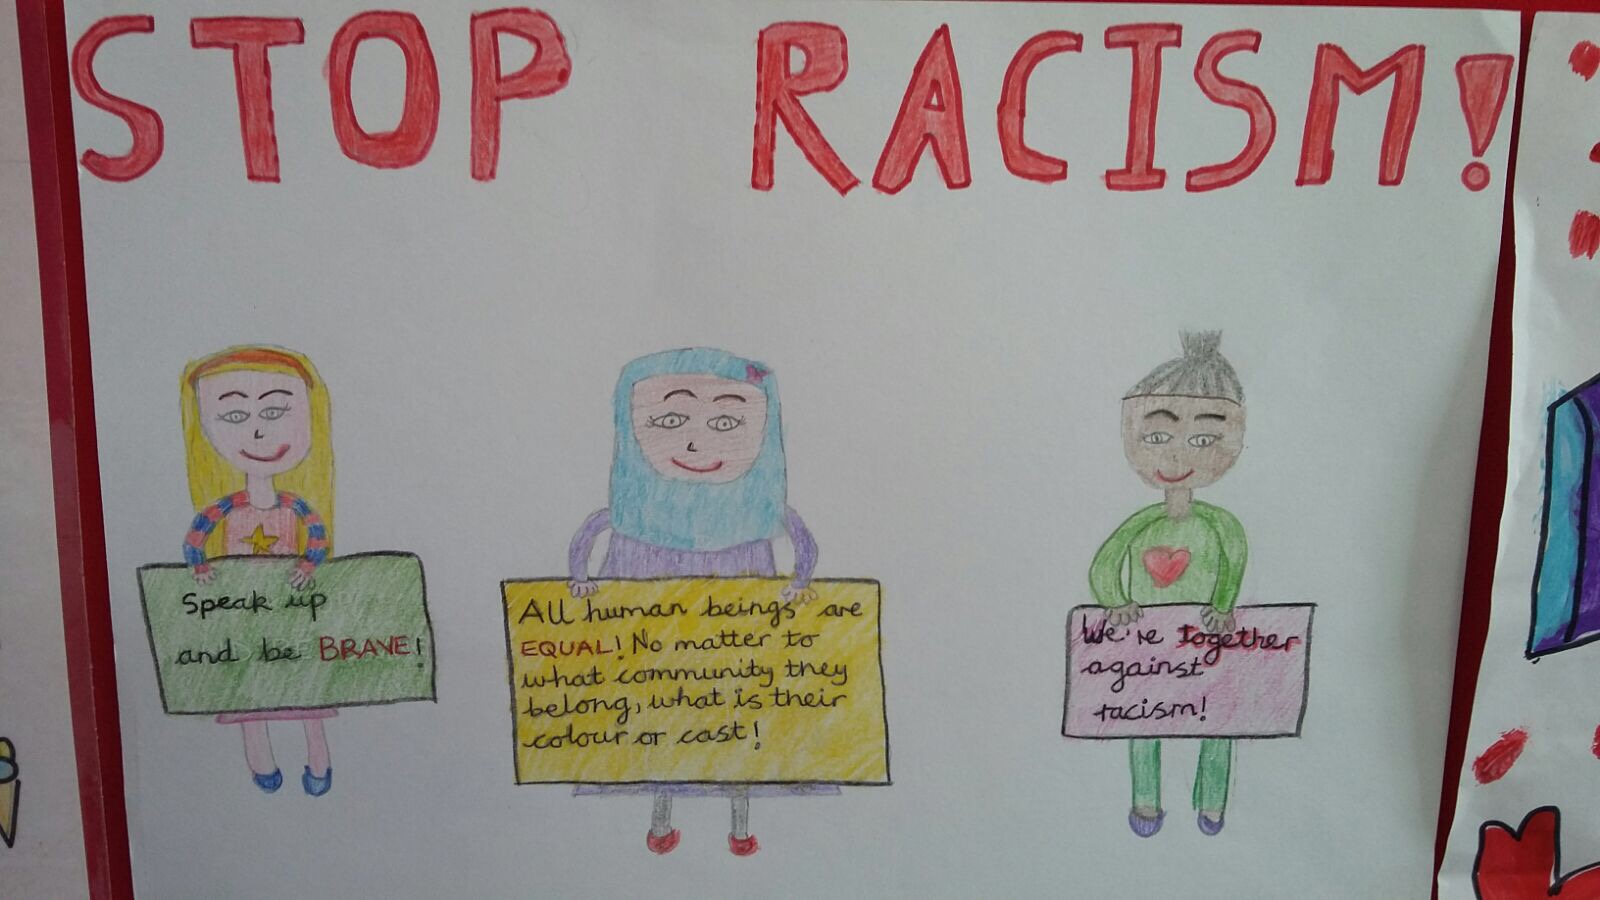 STOP RACISM!
Speak up
and be BRAVE!
All human beings are
EQUAL! No matter to
what community they
belong, what is their
colour or cast!
We're together
against
racism!